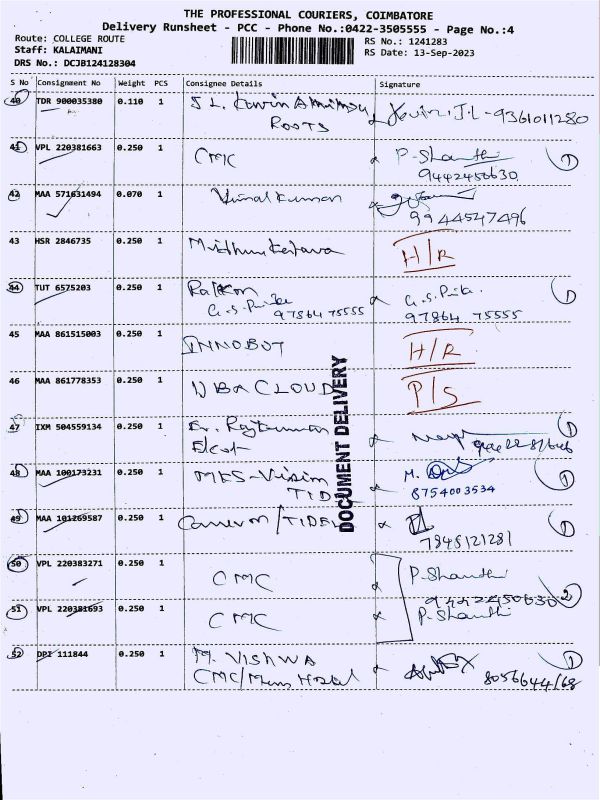 THE PROFESSIONAL COURIERS, COIMBATORE
Delivery Runsheet - PCC - Phone No.:0422-3505555 - Page No.:4
Route: COLLEGE ROUTE
Staff: KALAIMANI
DRS No.: DCJB124128304
RS No.: 1241283
RS Date: 13-Sep-2023
S No Consignment No Weight PCS Consignee Details Signature
40 TDR 900035380 0.110 1 J.L. Kevin J.L - 9361011280
ROOTS
41 VPL 220381663 0.250 1 CMC P-Shanthi 1
9442450630
42 MAA 571631494 0.070 1 Vimal Kumar
9944547496
43 HSR 2846735 0.250 1 H/R
44 TUT 6575203 0.250 1 G.S. 1
G.S. 97864 75555 97864 75555
45 MAA 861515003 0.250 1 INNOBOT H/R
46 MAA 861778353 0.250 1 NBA CLOUD P/S
DOCUMENT DELIVERY
47 IXM 504559134 0.250 1 Er. Rajkumar 1
Elcot
48 MAA 100173231 0.250 1 MKS-Vision M. 1
TIDEL 8754003534
49 MAA 101269587 0.250 1 Cameron/TIDEL 1
7845121281
50 VPL 220383271 0.250 1 CMC P-Shanthi
9442450630 2
51 VPL 220381693 0.250 1 CMC P-Shanthi
52 DPI 111844 0.250 1 M. VISHWA 1
CMC/Mens Hostel